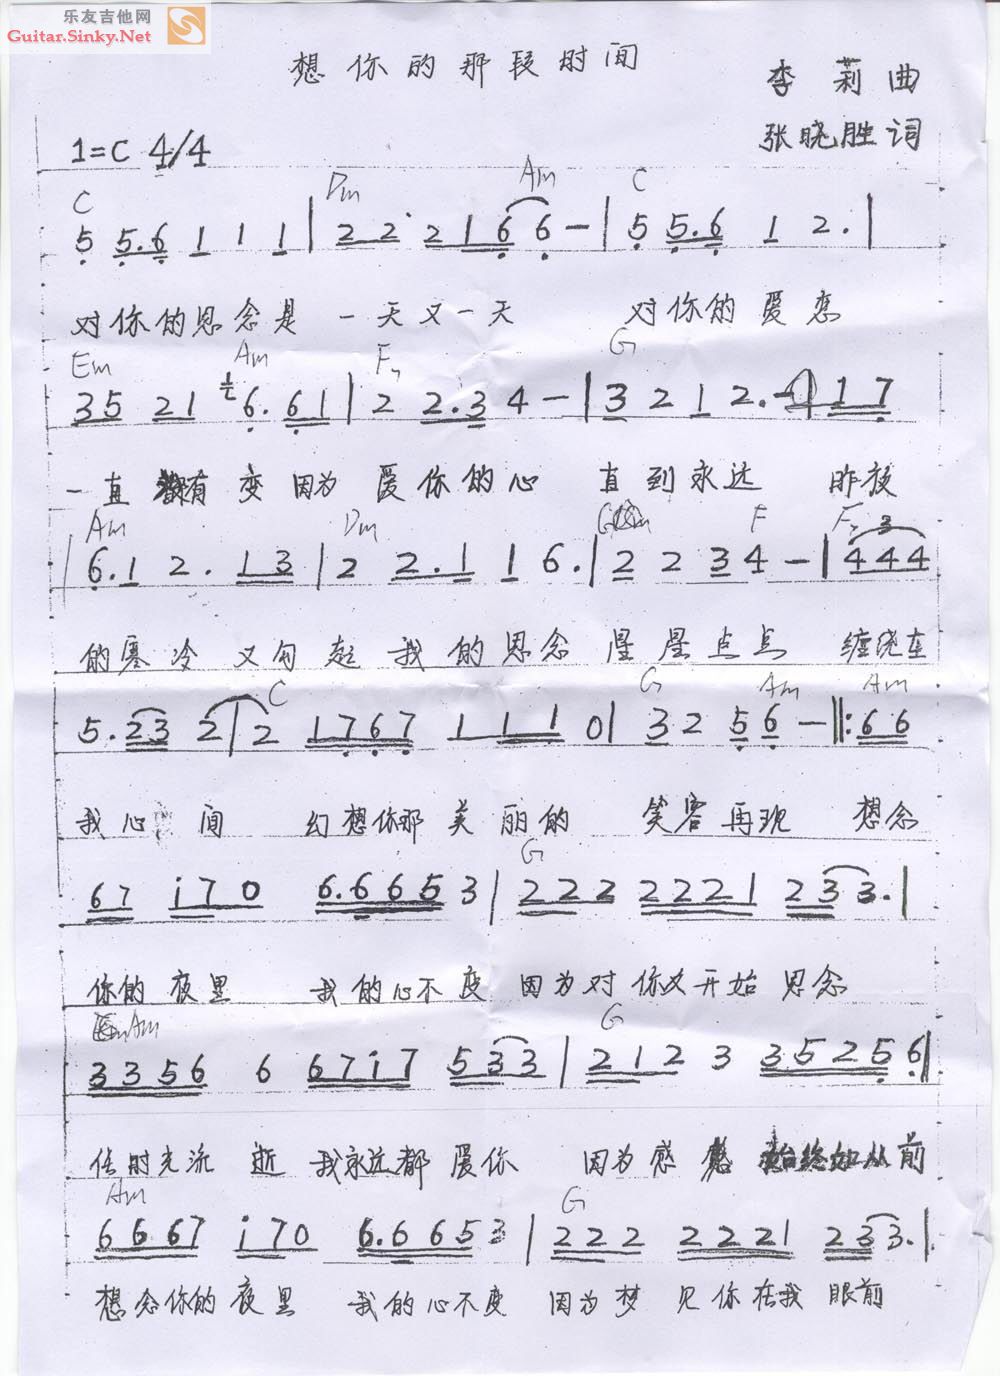 乐友吉他网
Guitar.Sinky.Net
想你的那段时间
李莉曲
张晓胜词
1=C 4/4
C Dm Am C
5 5.6 1 1 1 | 2 2 2 1 6 6 - | 5 5.6 1 2. |
对你的思念是 一天又一天 对你的爱恋
Em Am F G
3 5 2 1 6. 6 1 | 2 2.3 4 - | 3 2 1 2. - | 1 7
一直没有变 因为爱你的心 直到永远 昨夜
Am Dm F F 3
| 6.1 2. 1 3 | 2 2.1 1 6. | 2 2 3 4 - | 4 4 4
的寒冷 又勾起 我的思念 星星点点 缠绕在
C G Am Am
5. 2 3 2 | 2 1 7 6 7 1 1 1 0 | 3 2 5 6 - ‖: 6 6
我心间 幻想你那美丽的 笑容再现 想念
G
6 7 i 7 0 6.6 6 5 3 | 2 2 2 2 2 2 1 2 3 3. |
你的夜里 我的心不变 因为对你又开始思念
Am G
3 3 5 6 6 6 7 i 7 5 3 3 | 2 1 2 3 3 5 2 5 6 ‖
任时光流逝 我永远都爱你 因为感 始终如从前
Am G
6 6 6 7 i 7 0 6.6 6 5 3 | 2 2 2 2 2 2 1 2 3 3. |
想念你的夜里 我的心不变 因为梦见你在我眼前